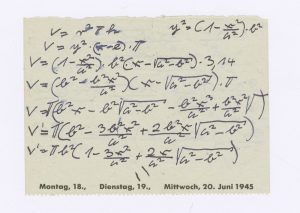 V = r² π h
y² = (1 - x²/a²) · b²
V = y² · (x - e) · π
V = (1 - x²/a²) · b² · (x - √(a² - b²)) · 3,14
V = (b² - b²x²/a²) · (x - √(a² - b²)) · π
V = π(b²x - b²√(a² - b²) - b²x³/a² + b²x²/a² √(a² - b²))
V' = π(b² - 3b²x²/a² + 2b²x/a² √(a² - b²))
V' = πb²(1 - 3x²/a² + 2x/a² √(a² - b²))
Montag, 18., Dienstag, 19., Mittwoch, 20. Juni 1945